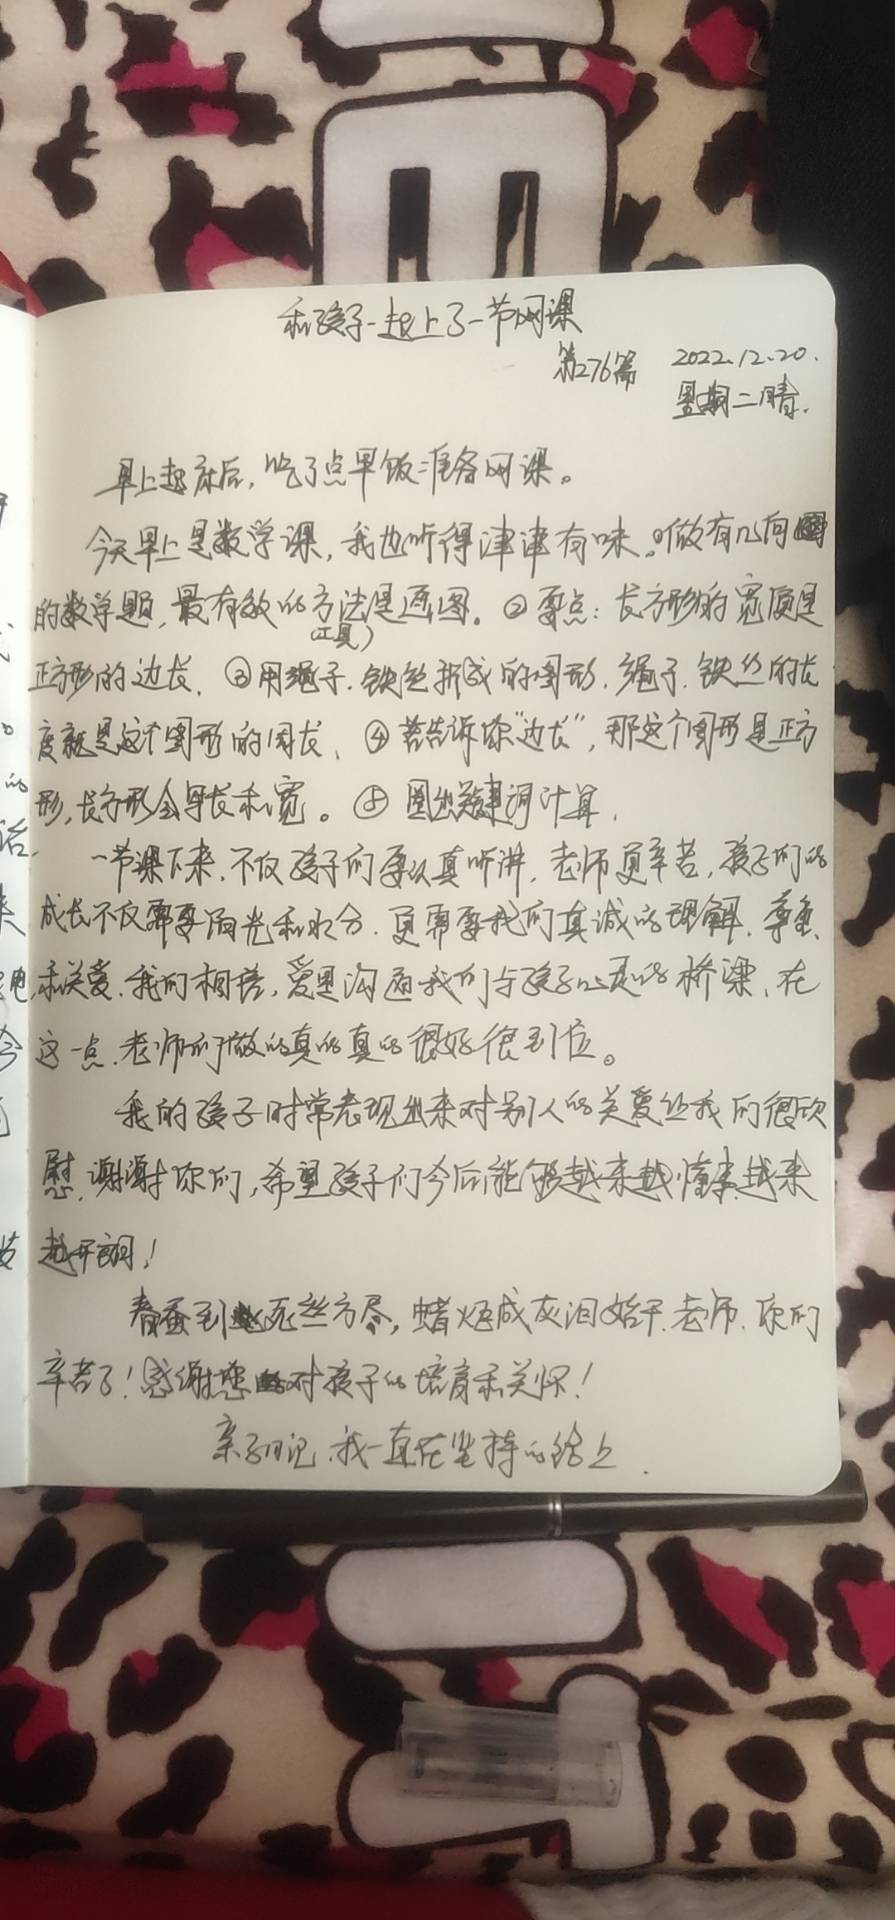 和孩子一起上了一节网课
第276篇 2022.12.20.
星期二晴.
早上起床后,吃了点早饭准备网课。
今天早上是数学课,我也听得津津有味。①做有几何图
的数学题,最有效的方法是画图。②要点:长方形的宽度是
(工具)
正方形的边长.③用绳子.铁丝折成的图形.绳子.铁丝的长
度就是这个图形的周长、④若告诉你"边长",那这个图形是正方
形,长方形会导长和宽。⑤圈出关键词计算.
一节课下来,不仅孩子们要认真听讲,老师更辛苦,孩子们的
成长不仅需要阳光和水分.更需要我们真诚的理解.尊重.
和关爱.我们相信,爱是沟通我们与孩子心灵的桥梁、在
这一点.老师们做的真的真的很好很到位。
我的孩子时常表现出来对别人的关爱让我们很欣
慰.谢谢你们,希望孩子们今后能够越来越懂事.越来
越开朗!
春蚕到死丝方尽,蜡炬成灰泪始干.老师.你们
辛苦了!感谢您对孩子的培育和关怀!
亲子日记.我一直在坚持的路上.